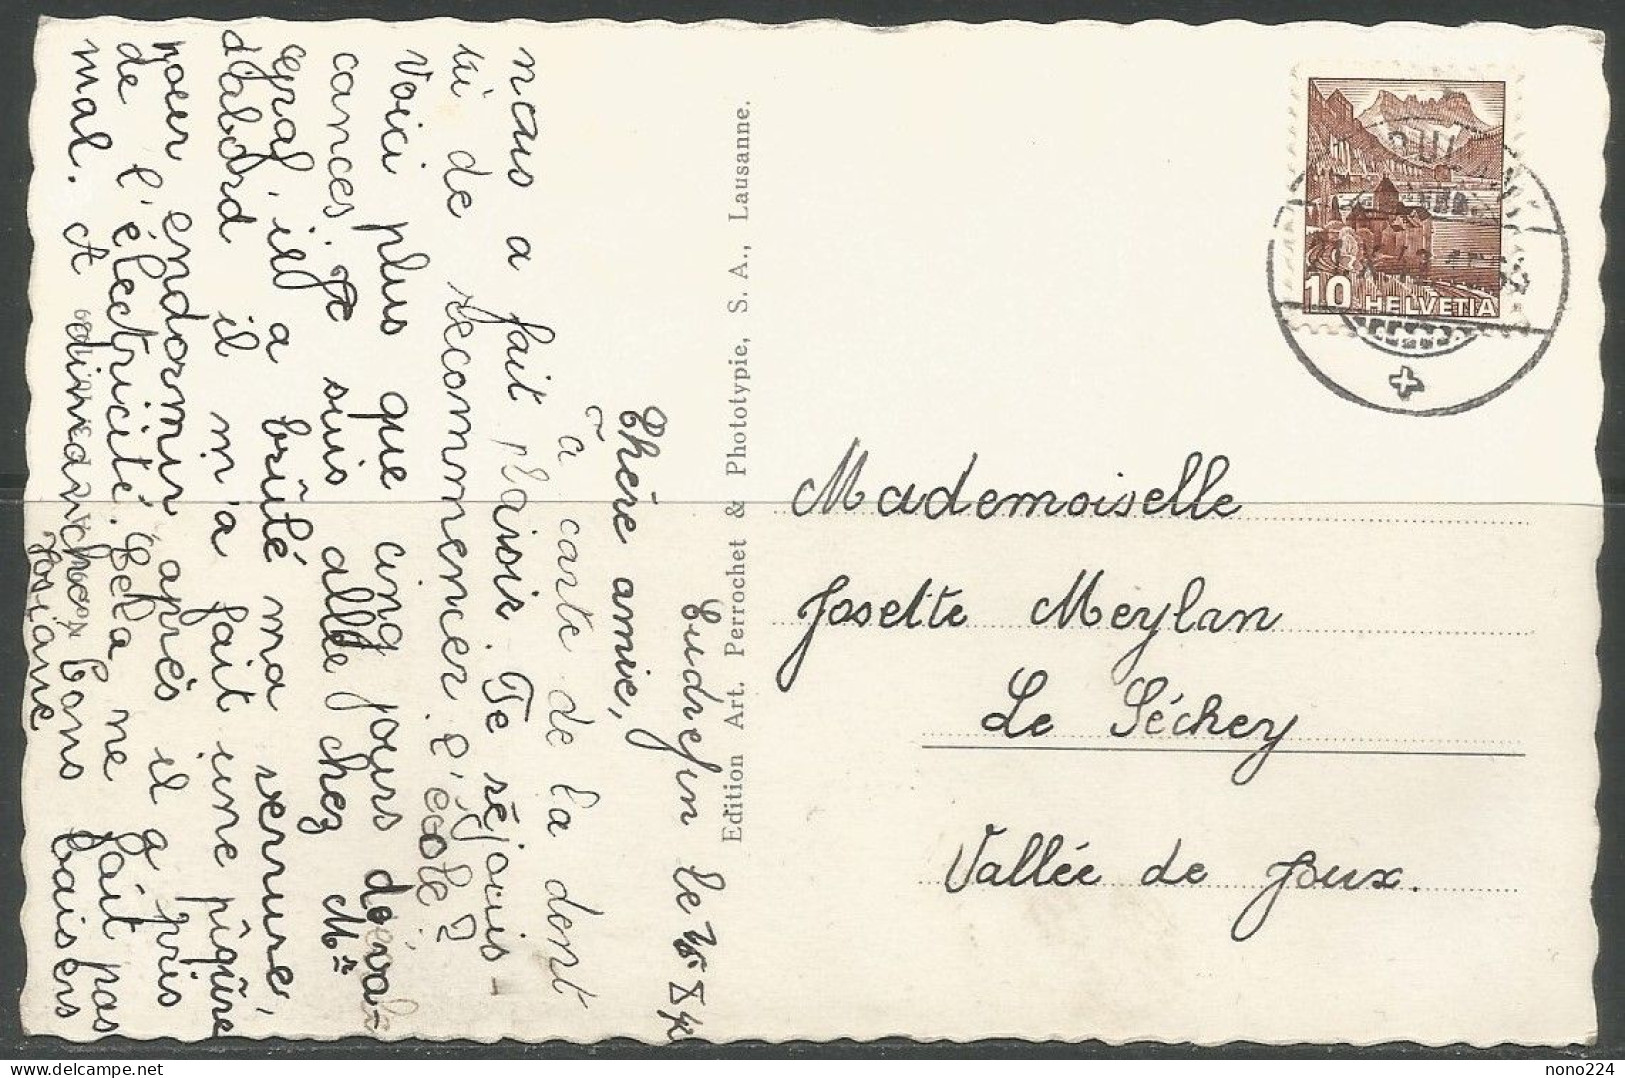 Cudrefin le X
Chère amie,
Ta carte de la dont
nous a fait plaisir. Te réjouis-
tu de recommencer l'école ?
Voici plus que cinq jours de va-
cances. Je suis allée chez Mr
il a brûlé ma verrue,
d'abord il m'a fait une pîqûre
pour l'endormir, après il a pris
de l'électricité. Cela ne fait pas
mal. A bons baisers
Josiane
Edition Art. Perrochet & Phototypie, S. A., Lausanne.
10 HELVETIA
Mademoiselle
Josette Meylan
Le Séchey
Vallée de Joux.
delcampe.net
nono224